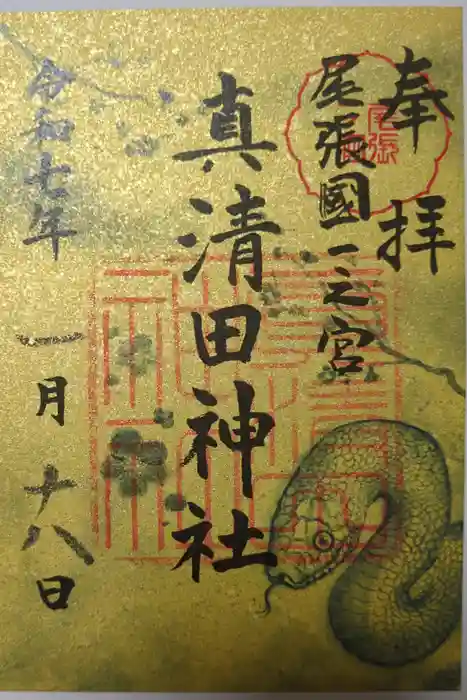 奉拝
尾張國一之宮
真清田神社
令和七年
一月十八日
尾張